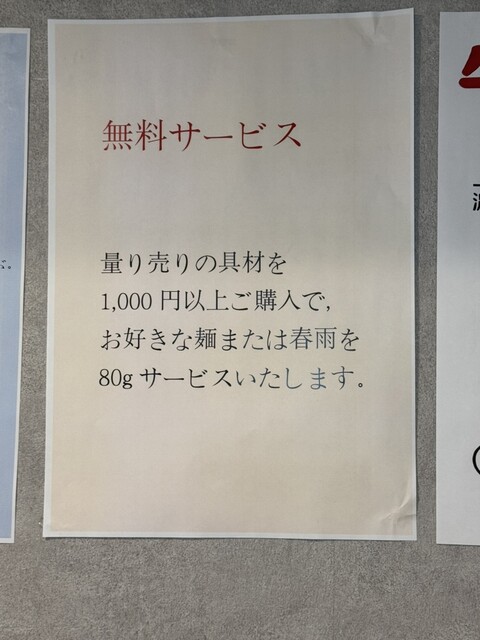 無料サービス
量り売りの具材を
1,000 円以上ご購入で,
お好きな麺または春雨を
80g サービスいたします。